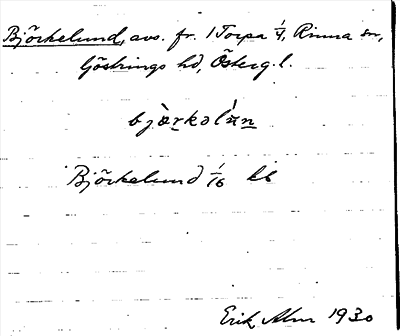 Björkelund, avs. fr. 1 Torpa 1/4, Rinna sn,
Göstrings hd, Österg. l.
bjærkəlæn
Björkelund 1/16 kb
Erik Alm 1930